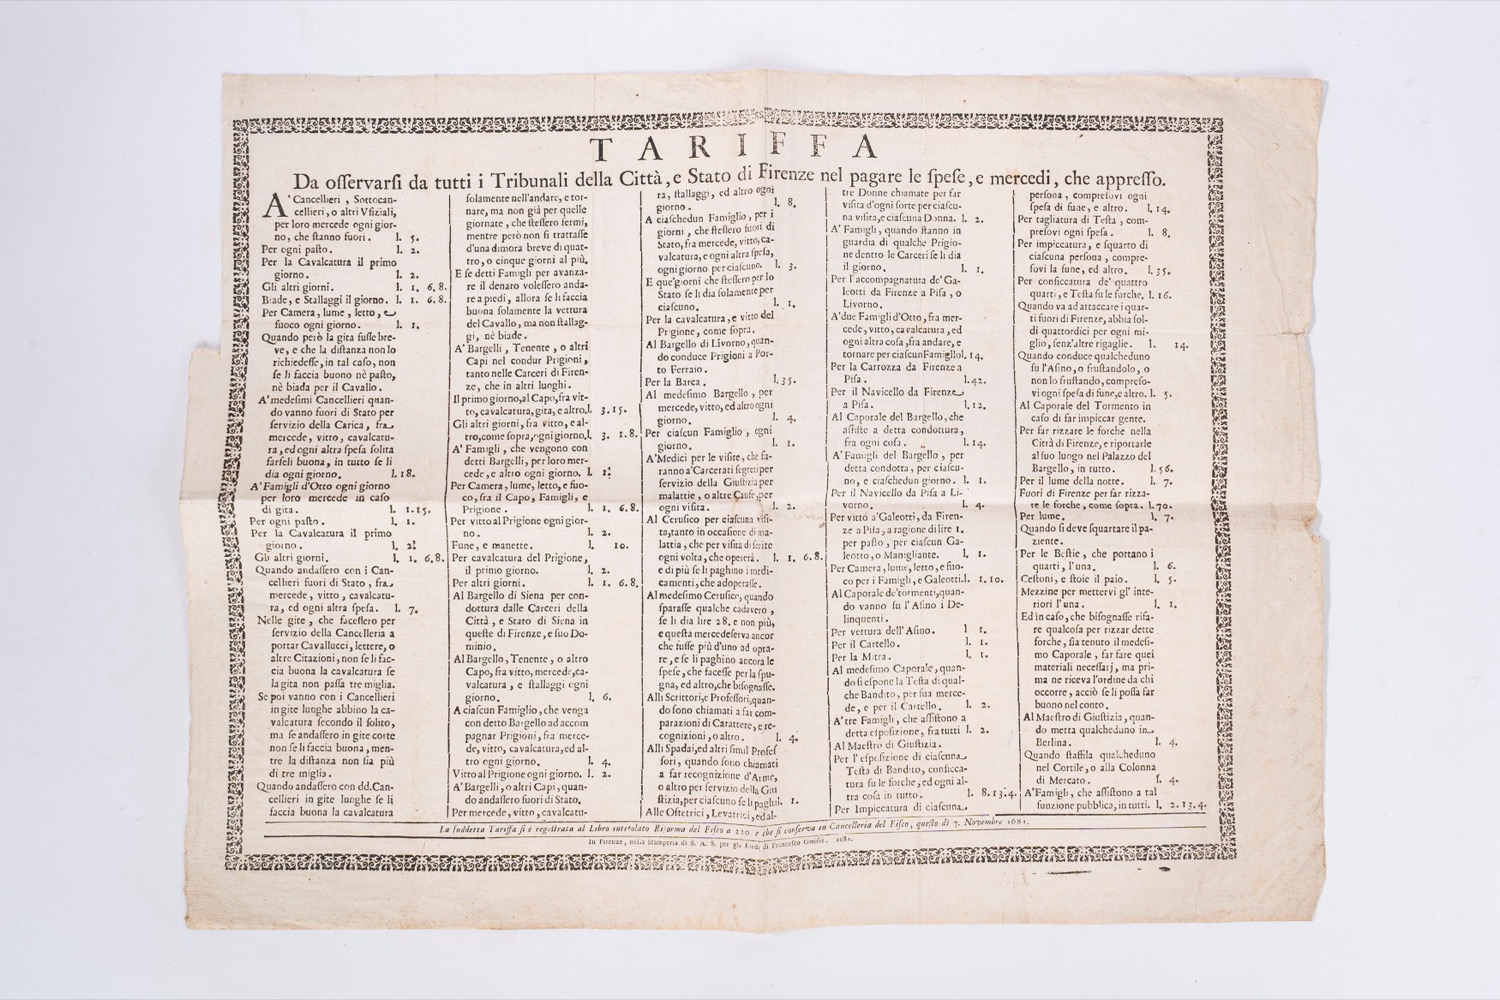 TARIFFA
Da osservarsi da tutti i Tribunali della Città, e Stato di Firenze nel pagare le spese, e mercedi, che appresso.
A' Cancellieri, Sottocan-
cellieri, o altri Vfiziali,
per loro mercede ogni gior-
no, che stanno fuori. l. 5.
Per ogni pasto. l. 2.
Per la Cavalcatura il primo
giorno. l. 2.
Gli altri giorni. l. 1. 6. 8.
Biade, e Stallaggi il giorno. l. 1. 6. 8.
Per Camera, lume, letto, e
fuoco ogni giorno. l. 1.
Quando però la gita fusse bre-
ve, e che la distanza non lo
richiedesse, in tal caso, non
se li faccia buono nè pasto,
nè biada per il Cavallo.
A' medesimi Cancellieri quan-
do vanno fuori di Stato per
servizio della Carica, fra
mercede, vitto, cavalcatu-
ra, ed ogni altra spesa solita
farseli buona, in tutto se li
dia ogni giorno. l. 18.
A' Famigli d'Otto ogni giorno
per loro mercede in caso
di gita. l. 1. 15.
Per ogni pasto. l. 1.
Per la Cavalcatura il primo
giorno. l. 2.
Gli altri giorni. l. 1. 6. 8.
Quando andassero con i Can-
cellieri fuori di Stato, fra
mercede, vitto, cavalcatu-
ra, ed ogni altra spesa. l. 7.
Nelle gite, che facessero per
servizio della Cancelleria a
portar Cavallucci, lettere, o
altre Citazioni, non se li fac-
cia buona la cavalcatura se
la gita non passa tre miglia.
Se poi vanno con i Cancellieri
in gite lunghe abbino la ca-
valcatura secondo il solito,
ma se andassero in gite corte
non se li faccia buona, men-
tre la distanza non sia più
di tre miglia.
Quando andassero con dd. Can-
cellieri in gite lunghe se li
faccia buona la cavalcatura
solamente nell'andare, e tor-
nare, ma non già per quelle
giornate, che stessero fermi,
mentre però non si trattasse
d'una dimora breve di quat-
tro, o cinque giorni al più.
E se detti Famigli per avanza-
re il denaro volessero anda-
re a piedi, allora se li faccia
buona solamente la vettura
del Cavallo, ma non stallag-
gi, nè biade.
A' Bargelli, Tenente, o altri
Capi nel condur Prigioni,
tanto nelle Carceri di Firen-
ze, che in altri luoghi.
Il primo giorno, al Capo, fra vit-
to, cavalcatura, gita, e altro, l. 3. 15.
Gli altri giorni, fra vitto, e al-
tro, come sopra, ogni giorno. l. 3. 1. 8.
A' Famigli, che vengono con
detti Bargelli, per loro mer-
cede, e altro ogni giorno. l. 1.
Per Camera, lume, letto, e fuo-
co, fra il Capo, Famigli, e
Prigione. l. 1. 6. 8.
Per vitto al Prigione ogni gior-
no. l. 2.
Fune, e manette. l. 10.
Per cavalcatura del Prigione,
il primo giorno. l. 2.
Per altri giorni. l. 1. 6. 8.
Al Bargello di Siena per con-
dottura dalle Carceri della
Città, e Stato di Siena in
queste di Firenze, e suo Do-
minio.
Al Bargello, Tenente, o altro
Capo, fra vitto, mercede, ca-
valcatura, e stallaggi ogni
giorno. l. 6.
A ciascun Famiglio, che venga
con detto Bargello ad accom
pagnar Prigioni, fra merce-
de, vitto, cavalcatura, ed al-
tro ogni giorno. l. 4.
Vitto al Prigione ogni giorno. l. 2.
A' Bargelli, o altri Capi, quan-
do andassero fuori di Stato,
Per mercede, vitto, cavalcatu-
ra, stallaggi, ed altro ogni
giorno. l. 8.
A ciaschedun Famiglio, per i
giorni, che stessero fuori di
Stato, fra mercede, vitto, ca-
valcatura, e ogni altra spesa,
ogni giorno per ciascuno. l. 3.
E que' giorni che stessero per lo
Stato se li dia solamente per
ciascuno. l. 1.
Per la cavalcatura, e vitto del
Prigione, come sopra.
Al Bargello di Livorno, quan-
do conduce Prigioni a Por-
to Ferraio.
Per la Barca. l. 35.
Al medesimo Bargello, per
mercede, vitto, ed altro ogni
giorno. l. 4.
Per ciascun Famiglio, ogni
giorno. l. 1.
A' Medici per le visite, che fa-
ranno a' Carcerati segreti per
servizio della Giustizia per
malattie, o altre Cause, per
ogni visita. l. 2.
Al Cerusico per ciascuna visi-
ta, tanto in occasione di ma-
lattia, che per visita di ferite
ogni volta, che opererà. l. 1. 6. 8.
e di più se li paghino i medi-
camenti, che adoperasse.
Al medesimo Cerusico, quando
sparasse qualche cadavero,
se li dia lire 28. e non più,
e questa mercede serva ancor
che fusse più d'uno ad opra-
re, e se li paghino ancora le
spese, che facesse per la spu-
gna, ed altro, che bisognasse.
Alli Scrittori, e Professori, quan-
do sono chiamati a far com-
parazioni di Carattere, e re-
cognizioni, o altro. l. 4.
Alli Spadai, ed altri simil Profes
sori, quando sono chiamati
a far recognizione d'Arme,
o altro per servizio della Giu
stizia, per ciascuno se li paghi l. 1.
Alle Ostetrici, Levatrici, ed al-
tre Donne chiamate per far
visita d'ogni sorte per ciascu-
na visita, e ciascuna Donna. l. 2.
A' Famigli, quando stanno in
guardia di qualche Prigio-
ne dentro le Carceri se li dia
il giorno. l. 1.
Per l'accompagnatura de' Ga-
leotti da Firenze a Pisa, o
Livorno.
A' due Famigli d'Otto, fra mer-
cede, vitto, cavalcatura, ed
ogni altra cosa, fra andare, e
tornare per ciascun Famiglio l. 14.
Per la Carrozza da Firenze a
Pisa. l. 42.
Per il Navicello da Firenze
a Pisa. l. 12.
Al Caporale del Bargello, che
assiste a detta condottura,
fra ogni cosa. l. 14.
A' Famigli del Bargello, per
detta condotta, per ciascu-
no, e ciaschedun giorno. l. 1.
Per il Navicello da Pisa a Li-
vorno. l. 4.
Per vitto a' Galeotti, da Firen-
ze a Pisa, a ragione di lire 1.
per pasto, per ciascun Ga-
leotto, o Mangiante. l. 1.
Per Camera, lume, letto, e fuo-
co per i Famigli, e Galeotti. l. 1. 10.
Al Caporale de' tormenti, quan-
do vanno su l'Asino i De-
linquenti.
Per vettura dell'Asino. l. 1.
Per il Cartello. l. 1.
Per la Mitra. l. 1.
Al medesimo Caporale, quan-
do si espone la Testa di qual-
che Bandito, per sua merce-
de, e per il Cartello. l. 2.
A' tre Famigli, che assistono a
detta esposizione, fra tutti l. 2.
Al Maestro di Giustizia.
Per l'esposizione di ciascuna
Testa di Bandito, conficca-
tura su le forche, ed ogni al-
tra cosa in tutto. l. 8. 13. 4.
Per Impiccatura di ciascuna
persona, compresovi ogni
spesa di fune, e altro. l. 14.
Per tagliatura di Testa, com-
presovi ogni spesa. l. 8.
Per impiccatura, e squarto di
ciascuna persona, compre-
sovi la fune, ed altro. l. 35.
Per conficcatura de' quattro
quarti, e Testa su le forche. l. 16.
Quando va ad attaccare i quar-
ti fuori di Firenze, abbia sol-
di quattordici per ogni mi-
glio, senz'altre rigaglie. l. 14.
Quando conduce qualcheduno
su l'Asino, o frustandolo, o
non lo frustando, compreso-
vi ogni spesa di fune, e altro. l. 5.
Al Caporale del Tormento in
caso di far impiccar gente.
Per far rizzare le forche nella
Città di Firenze, e riportarle
al suo luogo nel Palazzo del
Bargello, in tutto. l. 56.
Per il lume della notte. l. 7.
Fuori di Firenze per far rizza-
re le forche, come sopra. l. 70.
Per lume. l. 7.
Quando si deve squartare il pa-
ziente.
Per le Bestie, che portano i
quarti, l'una. l. 6.
Cestoni, e stoie il paio. l. 5.
Mezzine per mettervi gl'inte-
riori l'una. l. 1.
Ed in caso, che bisognasse rifa-
re qualcosa per rizzar dette
forche, sia tenuto il medesi-
mo Caporale, far fare quei
materiali necessarj, ma pri-
ma ne riceva l'ordine da chi
occorre, acciò se li possa far
buono nel conto.
Al Maestro di Giustizia, quan-
do metta qualcheduno in
Berlina. l. 4.
Quando staffila qualcheduno
nel Cortile, o alla Colonna
di Mercato. l. 4.
A' Famigli, che assistono a tal
funzione pubblica, in tutti. l. 2. 13. 4.
La suddetta Tariffa si è registrata al Libro intitolato Riforma del Fisco a 220. e che si conserva in Cancelleria del Fisco, questo dì 7. Novembre 1681.
In Firenze, nella Stamperia di S. A. S. per gli Eredi di Francesco Onofri. 1681.